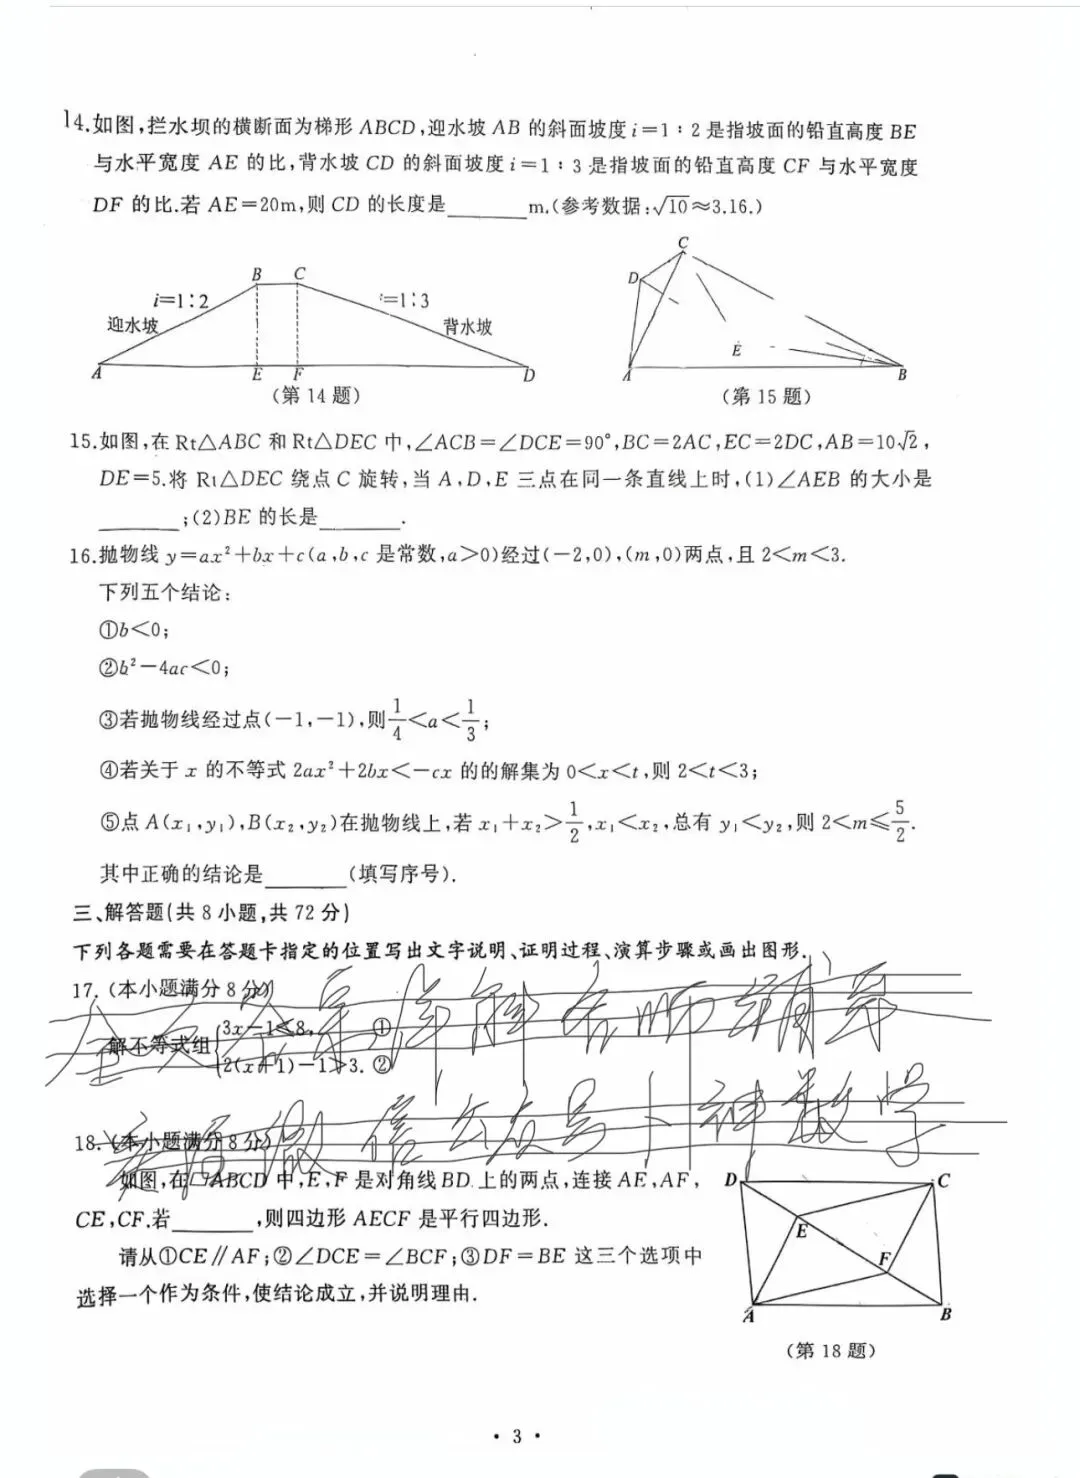 14.如图,拦水坝的横断面为梯形 ABCD,迎水坡 AB 的斜面坡度 i=1∶2 是指坡面的铅直高度 BE
与水平宽度 AE 的比,背水坡 CD 的斜面坡度 i=1∶3 是指坡面的铅直高度 CF 与水平宽度
DF 的比.若 AE=20m,则 CD 的长度是______m.(参考数据:√10≈3.16.)
B C
i=1∶2 i=1∶3
迎水坡 背水坡
A E F D
(第 14 题)
C
D
E
A B
(第 15 题)
15.如图,在 Rt△ABC 和 Rt△DEC 中,∠ACB=∠DCE=90°,BC=2AC,EC=2DC,AB=10√2,
DE=5.将 Rt△DEC 绕点 C 旋转,当 A,D,E 三点在同一条直线上时,(1)∠AEB 的大小是
______;(2)BE 的长是______.
16.抛物线 y=ax²+bx+c(a,b,c 是常数,a>0)经过(-2,0),(m,0)两点,且 2<m<3.
下列五个结论:
①b<0;
②b²-4ac<0;
③若抛物线经过点(-1,-1),则1/4<a<1/3;
④若关于 x 的不等式 2ax²+2bx<-cx 的的解集为 0<x<t,则 2<t<3;
⑤点 A(x₁,y₁),B(x₂,y₂)在抛物线上,若 x₁+x₂>1/2,x₁<x₂,总有 y₁<y₂,则 2<m≤5/2.
其中正确的结论是______(填写序号).
三、解答题(共 8 小题,共 72 分)
下列各题需要在答题卡指定的位置写出文字说明、证明过程、演算步骤或画出图形.
17. (本小题满分 8 分)
解不等式组{3x-1≤8, ①
2(x+1)-1>3. ②
微信公众号卜神数学
18. (本小题满分 8 分)
如图,在□ABCD 中,E,F 是对角线 BD 上的两点,连接 AE,AF,
CE,CF.若______,则四边形 AECF 是平行四边形.
请从①CE∥AF;②∠DCE=∠BCF;③DF=BE 这三个选项中
选择一个作为条件,使结论成立,并说明理由.
D C
E
F
A B
(第 18 题)
· 3 ·